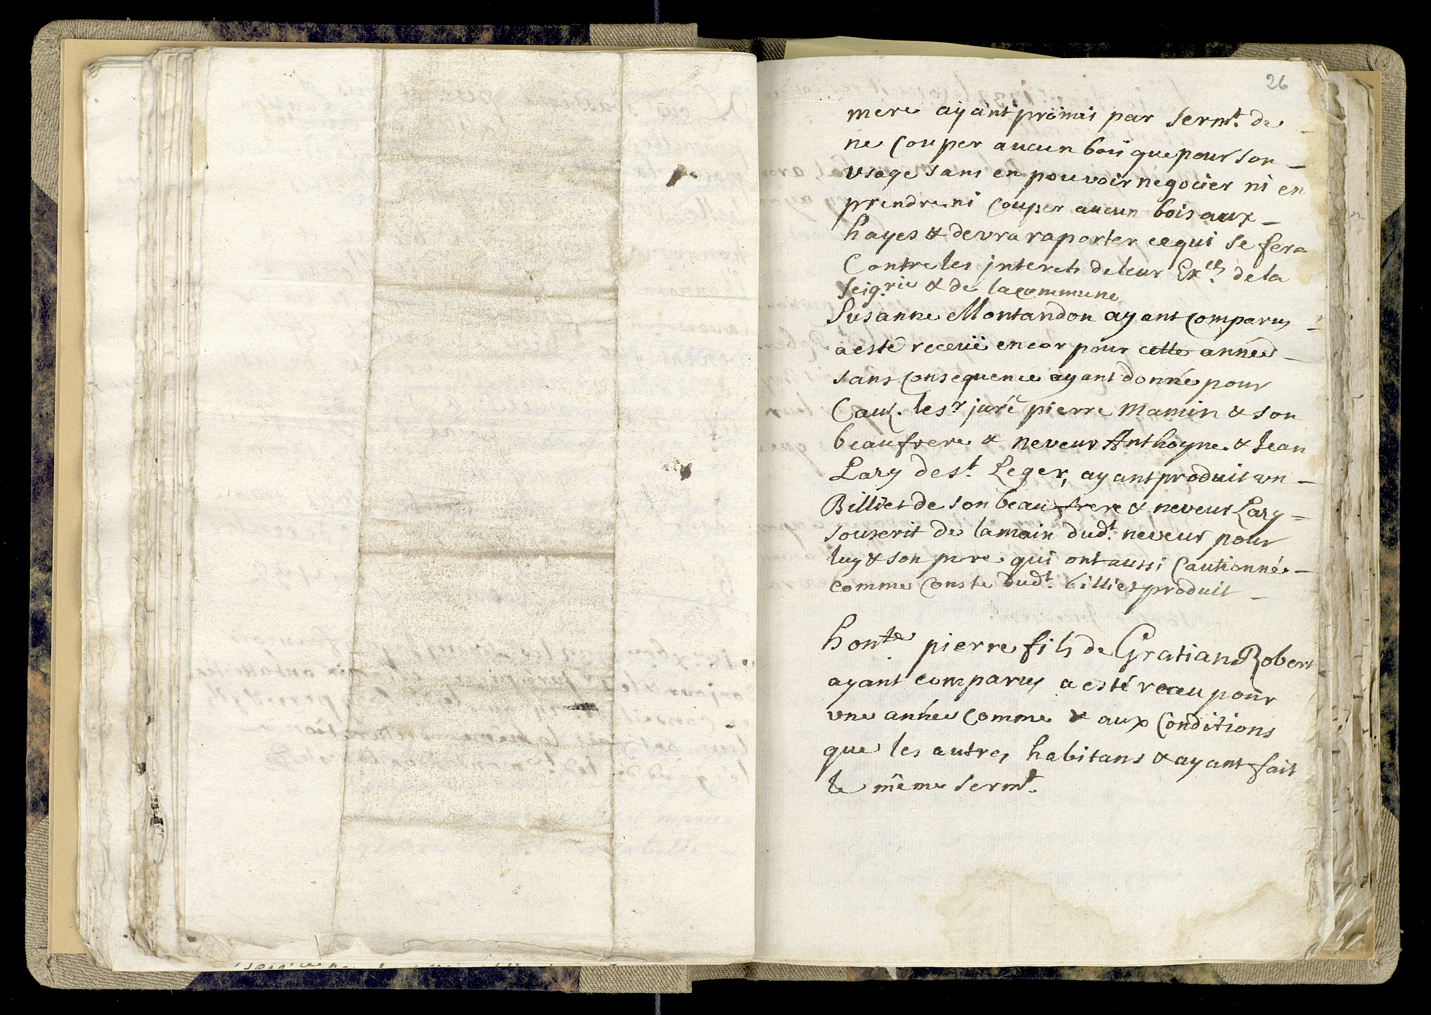 26
mere ayant promis par serm.t de
ne couper aucun bois que pour son
usage sans en pouvoir negocier ni en
prendre ni couper aucun bois aux
hayes & devra raporter ce qui se fera
Contre les interets de leur Ex.ces de la
seig.rie & de la commune
Susanne Montandon ayant comparus
a esté receüe encor pour cette année
sans consequence ayant donné pour
Cau. le s.r juré pierre Mamin & son
beaufrere & neveur Anthoyne & Jean
Lary de s.t Leger, ayant produit un
Billiet de son beaufrere & neveur Lary
souscrit de la main dud.t neveur pour
luy & son pere qui ont aussi Cautionné
comme conste dud.t billiet produit
hon.te pierre fils de Gratian Robert
ayant comparus a esté receu pour
une année comme & aux Conditions
que les autres habitans & ayant fait
le même serm.t